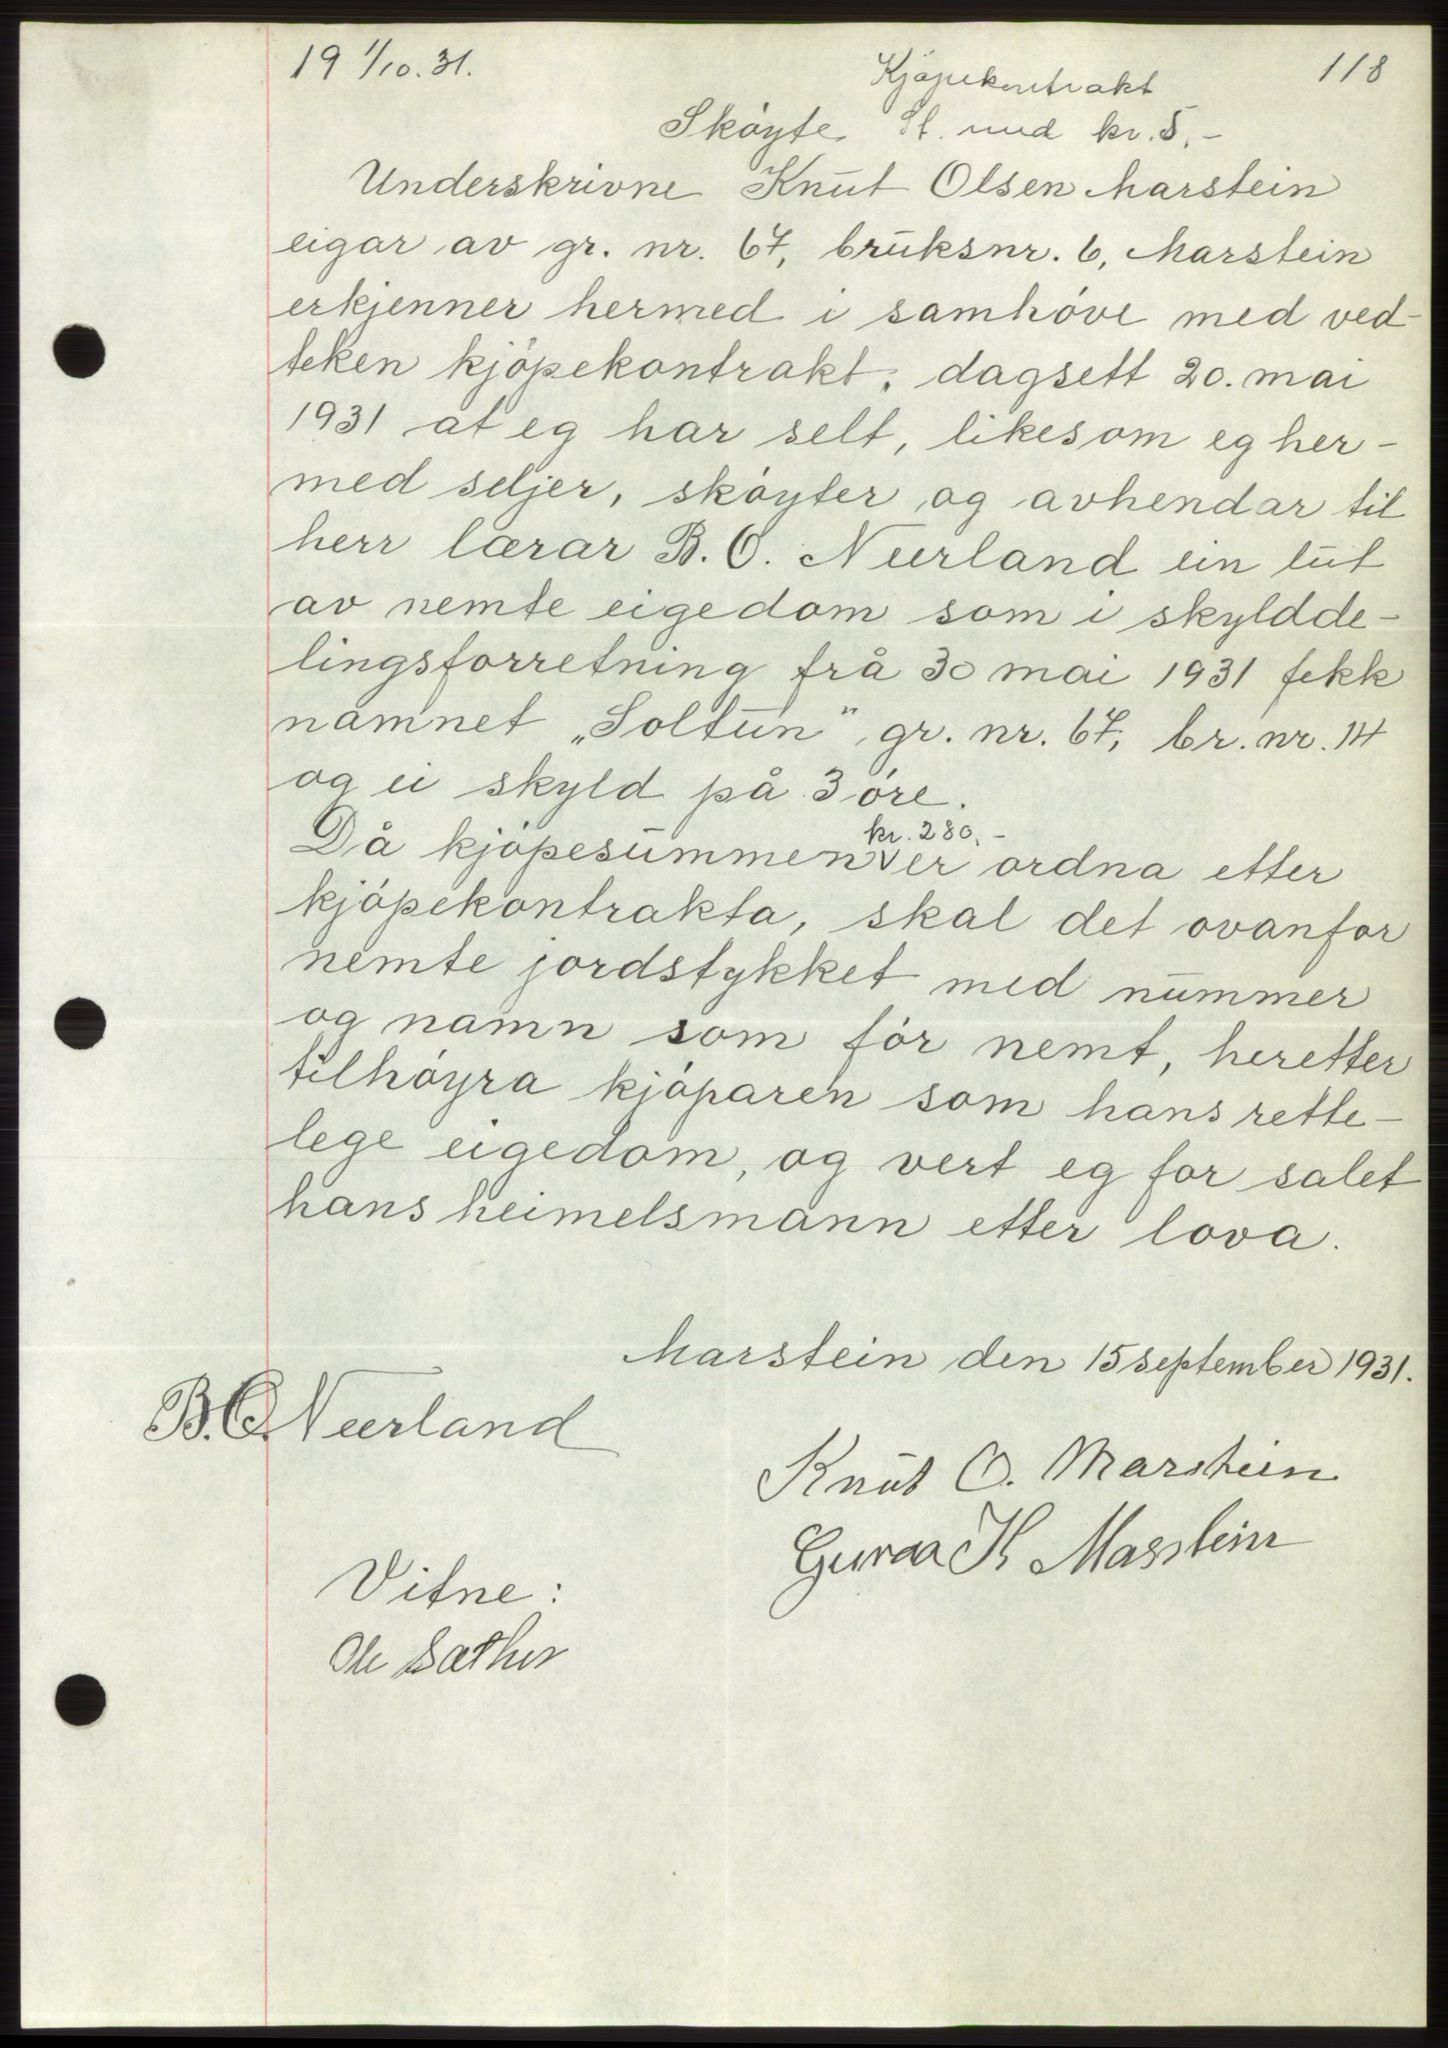 19 1/10. 31.
118
Kjöpekontrakt
Sköyte St. med kr. 5.-
Underskrivne Knut Olsen Marstein
eigar av gr. nr. 67, bruksnr. 6, Marstein
erkjenner hermed i samhöve med ved-
teken kjöpekontrakt, dagsett 20. mai
1931 at eg har selt, likesom eg her-
med seljer, sköyter og avhendar til
herr lærar B. O. Neerland ein lut
av nemte eigedom som i skyldde-
lingsforretning frå 30 mai 1931 fekk
namnet „Soltun" gr. nr. 67, br. nr. 14
og ei skyld på 3 öre.
kr. 280.-
Då kjöpesummen er ordna etter
kjöpekontrakta, skal det ovanfor
nemte jordstykket med nummer
og namn som för nemt, heretter
tilhöyra kjöparen som hans rette-
lege eigedom, og vert eg for salet
hans heimelsmann etter lova.
Marstein den 15 september 1931.
B. O. Neerland
Knut O. Marstein
Guroa K Marstein
Vitne:
Ole Sæther